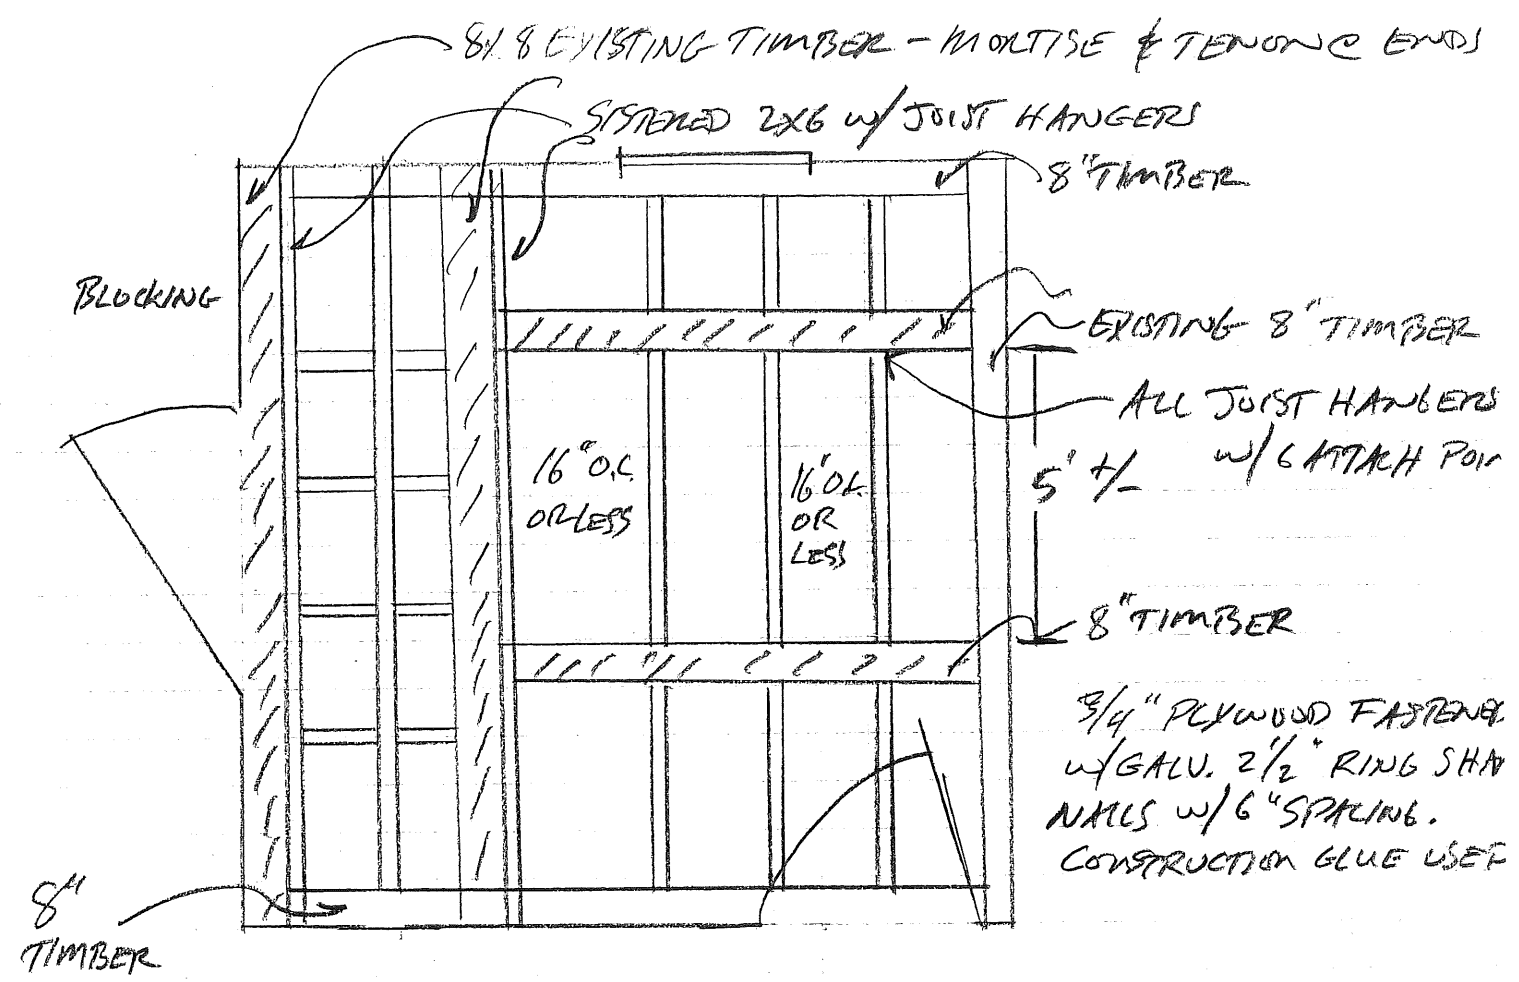 8X8 EXISTING TIMBER - MORTISE & TENON @ ENDS
SISTERED 2X6 W/ JOIST HANGERS
8" TIMBER
BLOCKING
EXISTING 8" TIMBER
ALL JOIST HANGERS
W/ 6 ATTACH POIN
16" O.C.
OR LESS
16" O.C.
OR
LESS
5' +/-
8" TIMBER
3/4" PLYWOOD FASTENE
W/ GALV. 2 1/2" RING SHA
NAILS W/ 6" SPACING.
CONSTRUCTION GLUE USE
8"
TIMBER